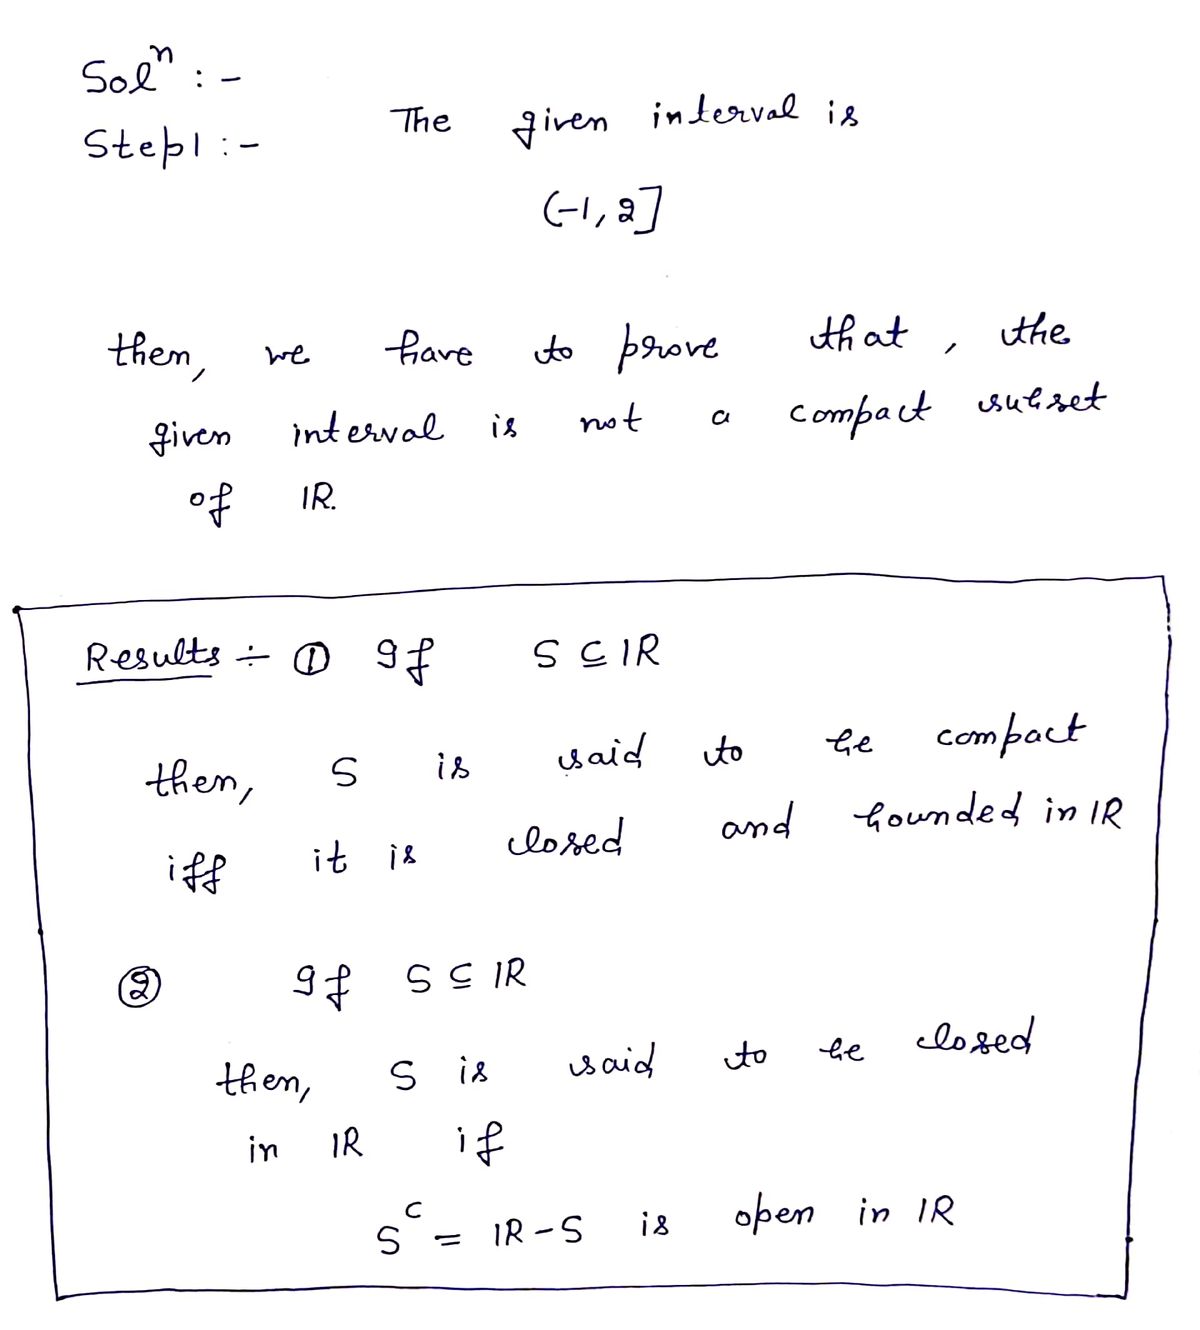 Solⁿ :-
Step1 :- The given interval is
(-1, 2]
then, we have to prove that, the
given interval is not a compact subset
of IR.
Results ÷ ① If S ⊆ IR
then, S is said to be compact
iff it is closed and bounded in IR
② If S ⊆ IR
then, S is said to be closed
in IR if
Sᶜ = IR - S is open in IR